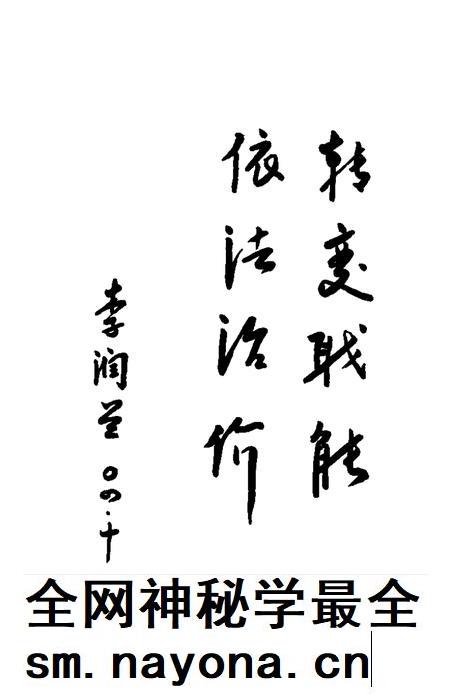 转变职能
依法治价
李润兰 〇四·十
全网神秘学最全
sm.nayona.cn